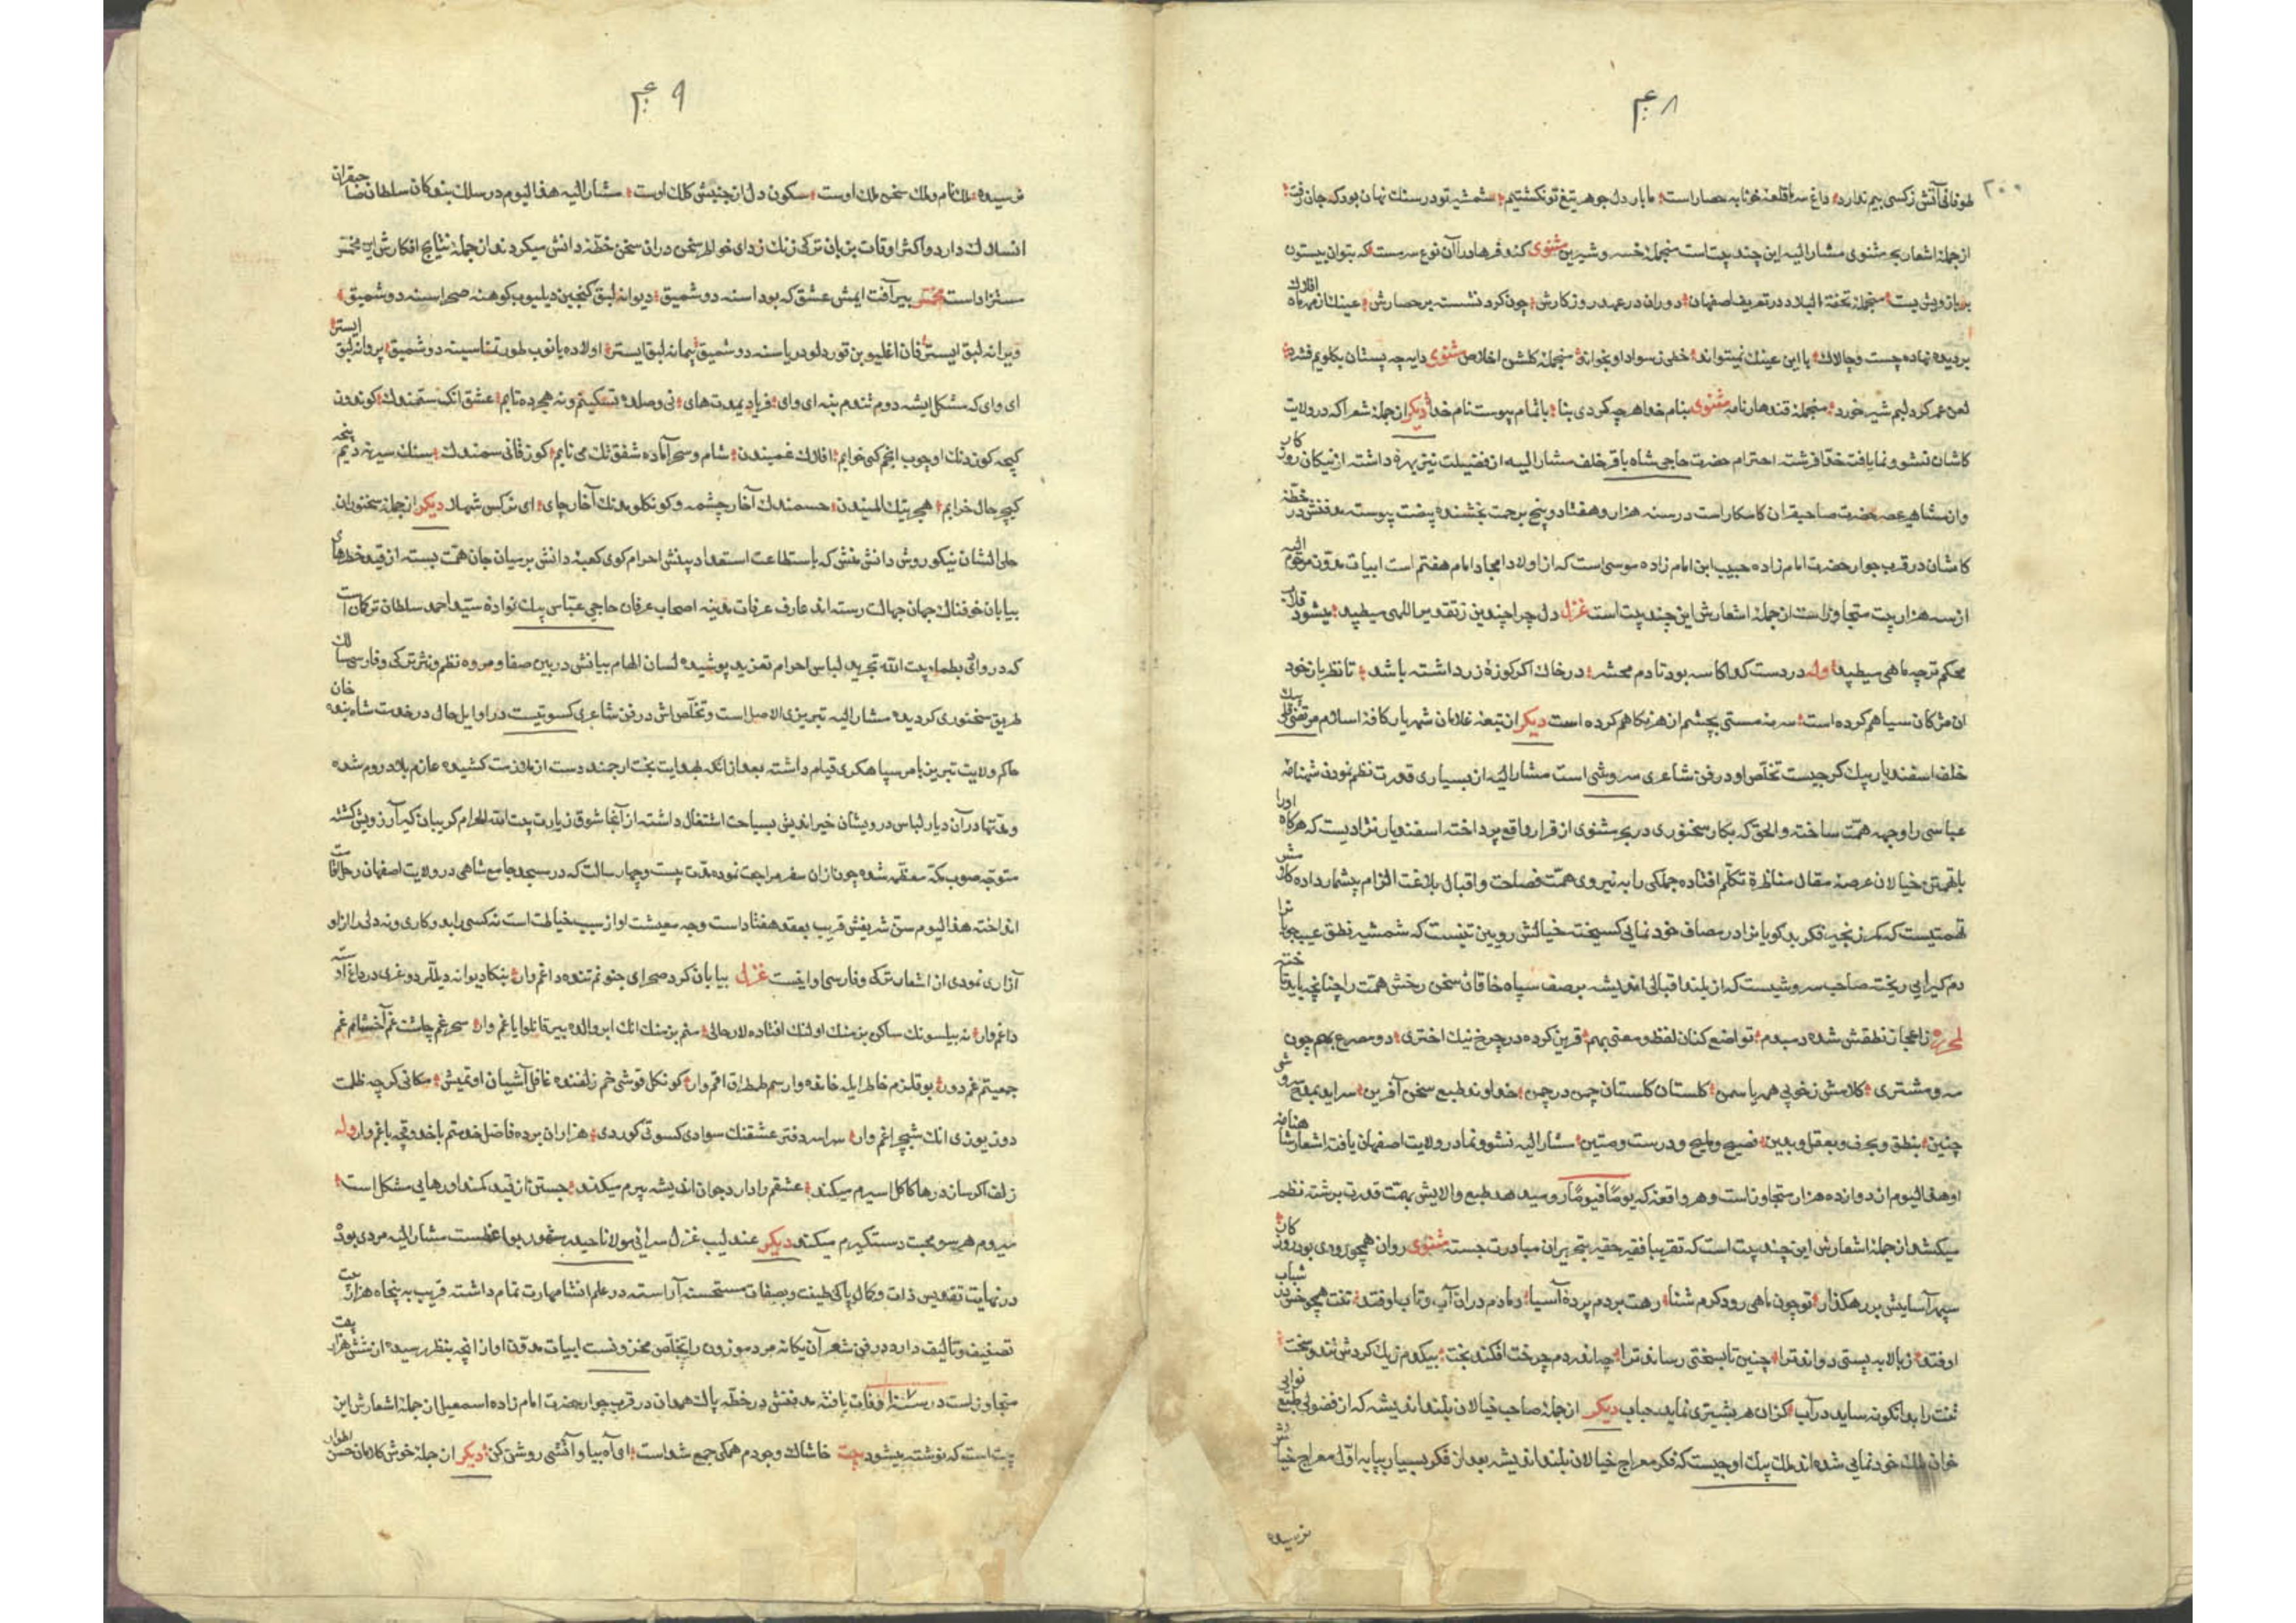 ۴۰۸
۲۰۰
طوفانی آتش زکسی بیم ندارد داغ سر ما قلعهٔ خونابه حصار است ما بار دل جوهر تیغ تو نکشتیم شمشیر تو در سنك نهان بود که جان رفت
از جمله اشعار بحر مثنوی مشار الیه این چند بیت است منجمله خسرو شیرین مثنوی کند فرهاد را آن نوع سرمست که بتوان بیستون
بر بازویش بست منجمله تحفة البلاد در تعریف اصفهان دوران در عهد روزکارش چون کرد نشست بر حصارش عینك از مهر ماه افلاك
بر دیده نهاده چست و چالاك با این عینك نمیتواند خطی ز سواد او بخواند منجمله کلشن اخلاص مثنوی دایه چه پستان بکلویم فشرد
لعن عمر کرد لبم شیر خورد منجمله قندهار نامه مثنوی بنام خدا هر چه کردی بنا باتمام پیوست نام خدا دیکر از جمله شعرا که در ولایت
کاشان نشو و نما یافت خدا فرشته احترام حضرت حاجی شاه باقر خلف مشار الیه از فضیلت نیز بهره داشته از نیکان روزکار
و از مشاهیر عصر حضرت صاحبقران کامکار است در سنه هزار و هفتاد و پنج برحمت بخشنده پیشت پیوسته مدفنش در خطهٔ
کاشان در قرب جوار حضرت امام زاده حبیب ابن امام زاده موسی است که از اولاد امجاد امام هفتم است ابیات مدون مرحوم الیه
از سه هزار بیت متجاوز است از جمله اشعارش این چند بیت است غزل دل چرا چندین ز تقدیر اللهی میطپد میشود قلاب
محکم تر چه ماهی میطپد وله در دست کدا کاسه بود تا دم محشر در خاك اکر کوزهٔ زر داشته باشد تا نظر باز خود
ان مژکان سیاهم کرده است سرمه مستی بچشم از هر نکاهم کرده است دیکر از تبعهٔ غلامان شهریار کافهٔ اسلام مرتضی قلی بیك
خلف اسفندیار بیك کرجیست تخلص او در فن شاعری سروشی است مشار الیه از بسیاری قدرت نظم نمودن شهنامهٔ
عباسی را وجهه همت ساخته و الحق که بکار سخنوری در بحر مثنوی از قرار واقع پرداخته اسفندیار نژادیست که هرکاه او را
با تهمتن خیالان عرصه مقال مناظرهٔ تکلم افتاده جملکی را به نیروی همت فصاحت و اقبال بلاغت الزام بیشمار داده کلامش
تهمتنیست که کمر زنجیر فکر بدکویا نرا در مصاف خود نمایی کسیخته خیالش رویین تنیست که شمشیر نطق عیب جویا نرا
دم کیرایی ریخته صاحب سروشیست که از بلند اقبالی اندیشه بر صف سپاه خاقان سخن رخش همت را چنانچه باید تاخته
لمحرره ز اعجاز نطقش شده دمبدم تواضع کنان لفظ و معنی بهم قرین کرده در چرخ نیك اختری دو مصرع بهم چون
مه و مشتری کلامش ز خوبی همه یاسمن کلستان کلستان چمن در چمن خداوند طبع سخن آفرین سراید بمدح سروشی
چنین بنطق و بحرف و بعقل و بدین فصیح و ملیح و درست و متین مشار الیه نشو و نما در ولایت اصفهان یافته اشعار شاهنامه
او هذا الیوم از دوازده هزار متجاوز است و هر واقعهٔ که یوما فیوما رو میدهد طبع والایش بهمت قدرت برشته نظم
میکشد از جمله اشعارش این چند بیت است که تقریبا فقیر حقیر بتحریر ان مبادرت جسته مثنوی روان همچو رودی بود روزکار
سپهر آسایش بر رهکذار تو چون ماهی رود کرم شنا رهت بر دم پردهٔ آسیا دمادم در ان آب و تاب اوفتد تنت همچو خس در شباب
اوفتد ز بالا به پستی دواند ترا چنین تا بسختی رساند ترا چه اندر دم چرخت افکند بخت بیکدم زیك کردش تند و سخت
تنت را بدانکونه ساید در آب کز ان هر بشیزی نماید حباب دیکر از جمله صاحب خیالان بلند اندیشه که از فضولی طبع نوایی
خوان ملك خود نمایی شده اند ملك بیك اوجیست که فکر معراج خیالان بلند اندیشه بعد از فکر بسیار بپایه اول معراج خیالش
نرسیده
۴۰۹
نرسیده ملك نام و ملك سخن ملك اوست سکون دل از جنبش کلك اوست مشار الیه هذا الیوم در سلك بندکان سلطان صاحبقران
انسلاك دارد و اکثر اوقات بزبان ترکی زنك زدای خواطر سخن دران سخن خطهٔ دانش میکردند از جمله نتایج افکارش این مخمس
مستزاد است مخمس بیر آفت ایمش عشق که بودا سنه دوشمیق دیوانه لیق کنجین دیلیوب کوهنه صحرا سنه دوشمیق
ویرانه لیق ایستر قان اغلیوبن قور دلو دریا سنه دوشمیق پیمانه لیق ایستر اولاده یانوب طور تمناسینه دوشمیق پروانه لیق ایستر
ای وای که مشکل ایشه دوم تندم ینه ای وای فریاد یمدت های نی وصلده تسکینم و نه هجرده تابم عشق انک ستمندك کوندون
کیجه کوزدنك اوچوب انجم کی خوابم افلاك غمیندن شام و سحر آماده شفق تك می نابم کوز قانی سمندك سنك سیر نه دیم پنجه
کیچر حال خرابم هجرینك المیندن حسمندك آخار چشمه و کونکلومدنك آخار چای ای نرکس شهلا دیکر از جمله سخنوران
حلی النشان نیکو روش دانش منش که با ستطاعت استعداد بینش احرام کوی کعبهٔ دانش بر میان جان همت بسته از قید خطرهای
بیابان خوفناك جهان جهالت رسته اند عارف عرفات مدینه اصحاب عرفان حاجی عباس بیك نوادهٔ سید احمد سلطان ترکان است
که در وادی بطحاء بیت الله تجرید لباس احرام تفرید پوشیده لسان الهام بیانش در بین صفا و مروه نظم و نثر ترکی و فارسی سالك
طریق سخنوری کردیده مشار الیه تبریزی الاصل است و تخلص اش در فن شاعری کسوتیست در اوایل حال در خدمت شاه بنده خان
حاکم ولایت تبریز بامر سپاهکری قیام داشته بعد از انکه بهدایت بخت ارجمند دست از ملازمت کشیده عازم بلاد روم شده
و مدتها در آن دیار لباس درویشان خیر اندیش بسیاحت اشتغال داشته از آنجا شوق زیارت بیت الله الحرام کریبان کیر آرزویش کشته
متوجه صوب مکه معظمه شده چون از ان سفر مراجعت نموده مدت بیست و چهار سالست که در مسجد جامع شاهی در ولایت اصفهان رحل اقامت
انداخته هذا الیوم سن شریفش قریب بعقد هفتاد است وجه معیشت او از سبب خیاطت است نه کسی را بدو کاری و نه دلی را از او
آزاری نمودی از اشعار ترکی و فارسی او اینست غزل بیابان کرد صحرای جنونم تنده داغم وار بنکا دیوانه دیللر دوغری در داغ آدسته
داغم وار نه بیلسونك ساکن بزمنك اولنك افتاده لار حالی سنم بزمنك انك ابروالده بیر قانلوایاغم وار سحر غم چاشت غم آخشام غم
جمعیتم غم دور بو قلزم خاطر ایله خانده وار سم طمطراقم وار کونکل قوشی خم زلفنده غافل آشیان اوتمیش مکانی کرچه ظلمت
دون یوزی انك شبچراغم وار سراسر دفتر عشقنك سوادی کسوتی کوردی هزاران پرده فاضل خدمتم باخدوقجه باغم وار وله
زلف اکر سازد رها کاکل اسیرم میکند عشقم را دارد جوان اندیشه پیرم میکند جستن از قید کمند او رهایی مشکل است
میروم هر سو محبت دستکیرم میکند دیکر عندلیب غزل سرائی مولانا حیدر مشهور بواعظست مشار الیه مردی بود
در نهایت تقدیس ذات و کمال پاکی طینت و بصفات مستحسنه آراسته در علم انشا مهارت تمام داشته قریب به پنجاه هزار بیت
تصنیف و تألیف دارد در فن شعر آن یکانه مرد موزون را تخلص مخزونست ابیات مدون او از انچه بنظر رسیده از شش هزار بیت
متجاوز است در سنه وفات یافته مدفنش در خطه پاك همدان در قرب جوار حضرت امام زاده اسمعیل از جمله اشعارش این
بیت است که نوشته میشود بیت خاشاك وجودم همکی جمع شد است او آه بیا و آتشی روشن کن دیکر از جمله خوش کلامان حسن اطوار